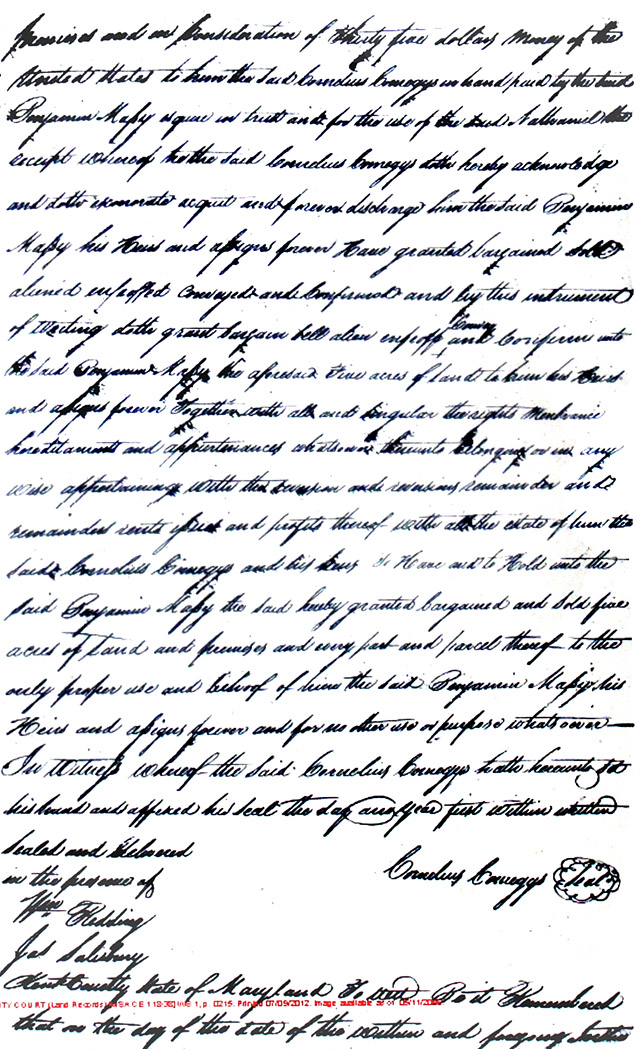 premises and in Consideration of thirty five dollars Money of the
United States to him the said Cornelius Comegys in hand paid by the said
Benjamin Massy esquire in trust and for the use of the said Nathaniel the
receipt whereof he the said Cornelius Comegys doth hereby acknowledge
and doth exonerate acquit and forever discharge him the said Benjamin
Massy his Heirs and assigns forever Have granted bargained Sold
aliened enfeoffed Conveyed and Confirmed and by this instrument
of writing doth grant bargain sell alien enfeoff Convey and Confirm unto
the said Benjamin Massy the aforesaid Five acres of Land to him his Heirs
and assigns forever Together with all and Singular the rights
hereditaments and appurtenances whatsoever thereunto belonging or in any
wise appertaining With the reversion and reversions remainder and
remainders rents issues and profits thereof with all the estate of him the
said Cornelius Comegys and his heirs To Have and to Hold unto the
said Benjamin Massy the said hereby granted bargained and sold five
acres of Land and premises and every part and parcel thereof to the
only proper use and behoof of him the said Benjamin Massy his
Heirs and assigns forever and for no other use or purpose whatsoever
In Witness whereof the said Cornelius Comegys hath hereunto set
his hand and affixed his seal the day and Year first within written
Sealed and Delivered
in the presence of
Cornelius Comegys Seal
Wm Redding
Jas Salisbury
Kent County State of Maryland To wit Be it Remembered
TY COURT (Land Records) 1, p. 0215. Printed 07/05/2012. Image available as of
that on the day of the date of the within and foregoing